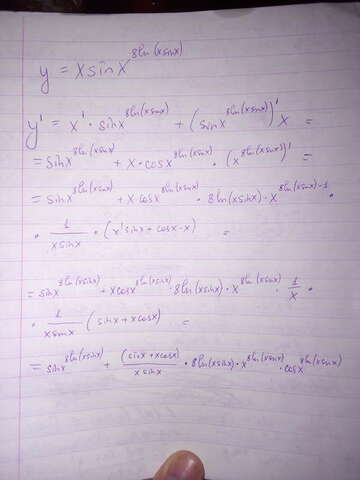 y = x sin x^8ln(xsinx)
y' = x' · sinx^8ln(xsinx) + (sinx^8ln(xsinx))' x =
= sinx^8ln(xsinx) + x · cosx^8ln(xsinx) · (x^8ln(xsinx))' =
= sinx^8ln(xsinx) + x·cosx^8ln(xsinx) · 8ln(xsinx) · x^8ln(xsinx)-1 ·
· 1/xsinx · (x'sinx + cosx·x) =
= sinx^8ln(xsinx) + xcosx^8ln(xsinx) · 8ln(xsinx) · x^8ln(xsinx) · 1/x ·
· 1/xsinx (sinx + xcosx) =
= sinx^8ln(xsinx) + (sinx + xcosx)/xsinx · 8ln(xsinx) · x^8ln(xsinx) · cosx^8ln(xsinx)